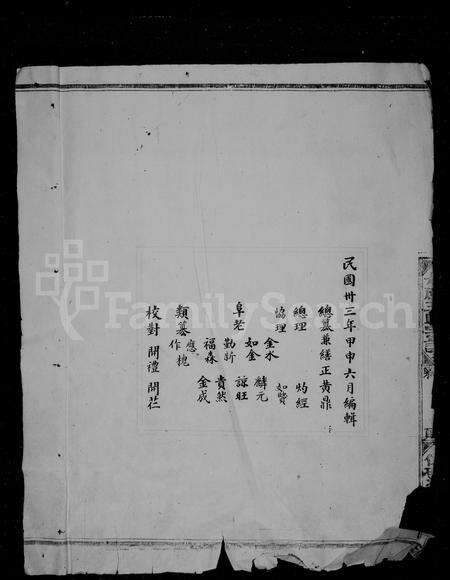 民國卅三年甲申六月編輯
總纂兼繕正黃鼎
總理 灼經
協理 如賢
金水 麟元
如金
阜老 諒旺
勤訢 貴然
福森 金成
類纂 應
作槐
校對 開禮 開芢
FamilySearch